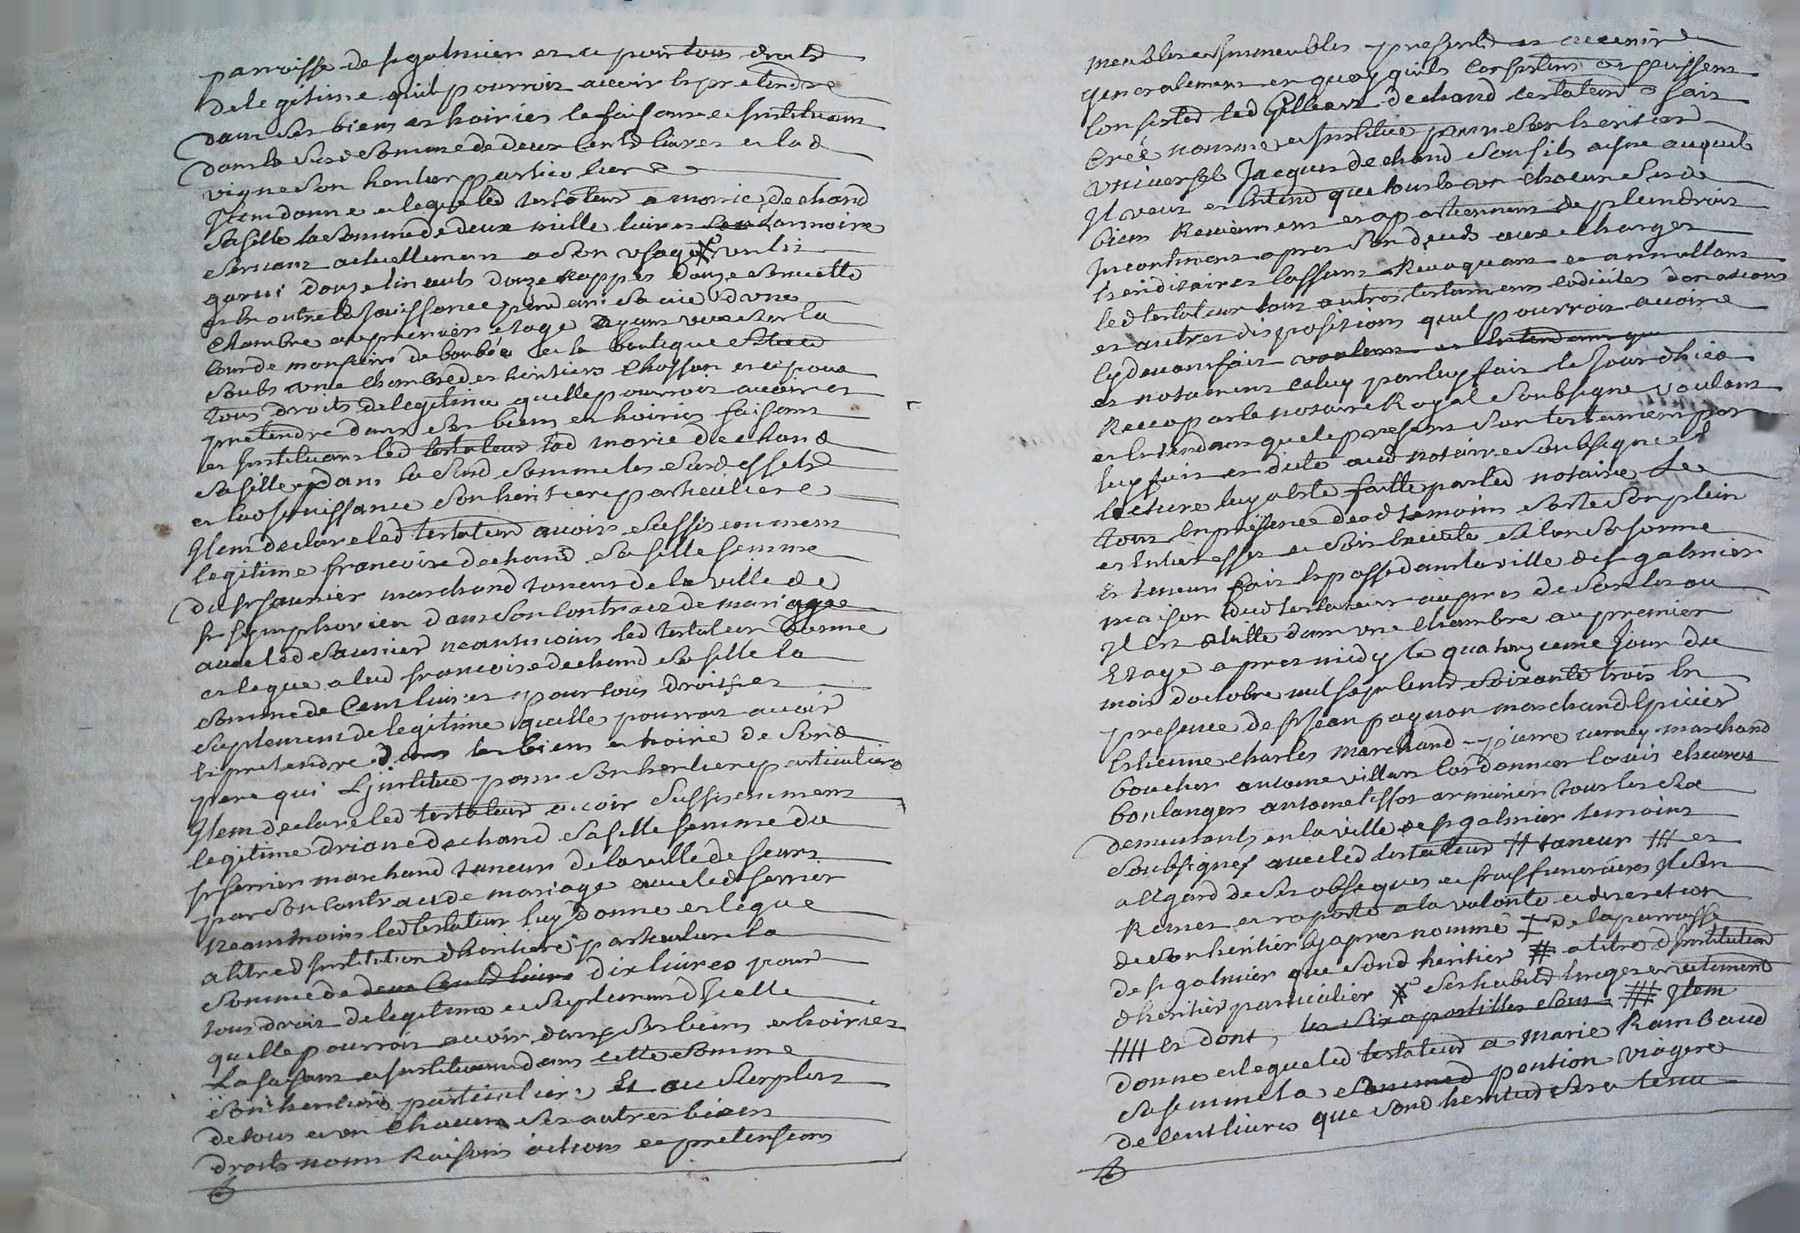 parroisse de st galmier et ce pour tous droits
de legitime quil pourroit avoir et pretendre
dans ses biens et hoiries le faisant et instituant
dans la susd somme de deux cents livres et lad
vigne son heritier particulier
Item donne et legue led testateur a marie dechand
sa fille la somme de deux mille livres son armoire
servant actuellement a son usage un lit
garni douze linceuls douze nappes douze serviettes
et en outre la jouissance pendant sa vie d'une
chambre au premier etage ayant vue sur la
cour de monsieur de et la boutique
soubs une chambre des heritiers chosson et ce pour
tous droits de legitime quelle pourroit avoir et
pretendre dans ses biens et hoiries faisant
et instituant led testateur lad marie dechand
sa fille dans la susd somme les susd effets
et lad jouissance son heritiere particuliere
Item declare led testateur avoir suffisemment
legitime francoise dechand sa fille femme
du sr saunier marchand taneur de la ville de
st simphorien dans son contract de mariage
avec led saunier neantmoins led testateur donne
et legue a lad francoise dechand sa fille la
somme de cent livres pour tous droits et
suplement de legitime quelle pourroit avoir
et pretendre dans les biens et hoirie de sond
pere qui l'institue pour son heritiere particuliere
Item declare led testateur avoir suffisemment
legitime driane dechand sa fille femme du
sr ferrier marchand taneur de la ville de feurs
par son contract de mariage avec led ferrier
neantmoins led testateur luy donne et legue
a titre d'institution d'heritiere particuliere la
somme de deux cents livres dix livres pour
tous droit de legitime et suplement d'icelle
quelle pourroit avoir dans ses biens et hoiries
la faisant et instituant dans cette somme
son heritiere particuliere Et au surplus
de tous et un chacun ses autres biens
droits noms raisons actions et pretensions
meubles et immeubles presents et avenir
generalement en quoy quils consistent et puissent
consister led Gilbert dechand testateur a fait
créé nommé et institué pour son heritier
universel Jacques dechand son fils ainé auquel
Il veut et entend que tous et un chacun sesd
biens reviennent et apartiennent de plein droit
Incontinent apres son deceds aux charges
hereditaires cassant revoquant et annullant
led testateur tous autres testaments codiciles donations
et autres dispositions quil pourroit avoir
cy devant fait voulant et entendant que
et notament celuy par luy fait le jour d'hier
receu par le notaire Royal soubsigné voulant
et entendant que le present son testament par
luy fait et dicté aud notaire soubsigné et
lecture luy a été faitte par led notaire le
tout en presence desd temoins sorte son plein
et entier effet et soit executé selon sa forme
et teneur fait et passé dans la ville de st galmier
maison dud testateur aupres de son lit ou
Il est dans une chambre au premier
Etage apres midy le quatorzieme jour du
mois d'octobre mil sept cents soixante trois en
presence de sr jean pagnon marchand Epicier
Estienne charles marchand pierre verney marchand
boucher antoine villars cordonnier louis
boulanger antoine armurier tous les six
demeurants en la ville de st galmier temoins
soubsignés avec led testateur # taneur ## et
a l'Egard de ses obseques et frais funeraires Il s'en
remet et raporte a la volonté et discretion
de son heritier cy apres nommé ‡ de la parroisse
de st galmier que sond heritier # a titre d'institution
d'heritier particulier ses habits linges et vetements
#### et dont les six apostilles sont ### Item
donne et legue led testateur a Marie Rambaud
sa femme la somme d pention viagere
de cent livres que sond heritier sera tenu